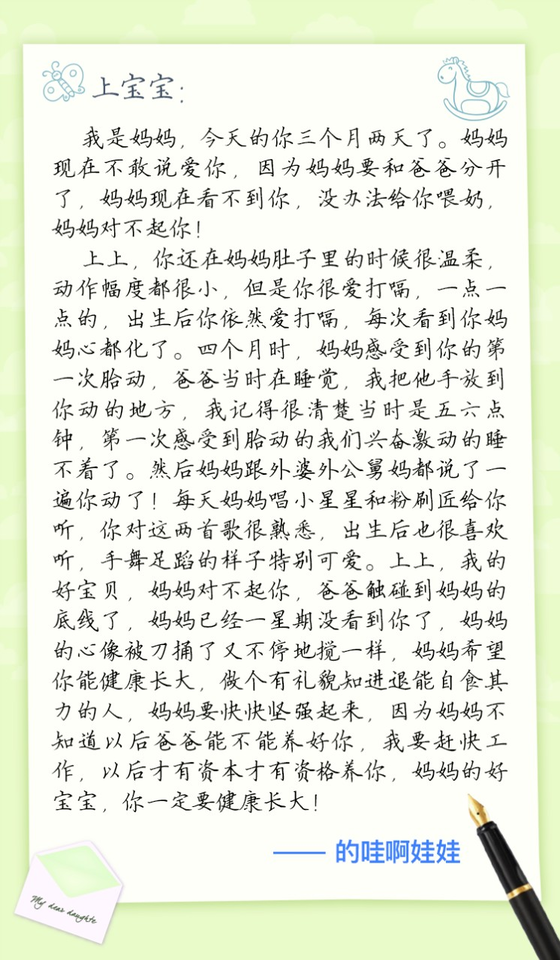 上宝宝：
我是妈妈，今天的你三个月两天了。妈妈
现在不敢说爱你，因为妈妈要和爸爸分开
了，妈妈现在看不到你，没办法给你喂奶，
妈妈对不起你！
上上，你还在妈妈肚子里的时候很温柔，
动作幅度都很小，但是你很爱打嗝，一点一
点的，出生后你依然爱打嗝，每次看到你妈
妈心都化了。四个月时，妈妈感受到你的第
一次胎动，爸爸当时在睡觉，我把他手放到
你动的地方，我记得很清楚当时是五六点
钟，第一次感受到胎动的我们兴奋激动的睡
不着了。然后妈妈跟外婆外公舅妈都说了一
遍你动了！每天妈妈唱小星星和粉刷匠给你
听，你对这两首歌很熟悉，出生后也很喜欢
听，手舞足蹈的样子特别可爱。上上，我的
好宝贝，妈妈对不起你，爸爸触碰到妈妈的
底线了，妈妈已经一星期没看到你了，妈妈
的心像被刀捅了又不停地搅一样，妈妈希望
你能健康长大，做个有礼貌知进退能自食其
力的人，妈妈要快快坚强起来，因为妈妈不
知道以后爸爸能不能养好你，我要赶快工
作，以后才有资本才有资格养你，妈妈的好
宝宝，你一定要健康长大！
—— 的哇啊娃娃
My dear daughte